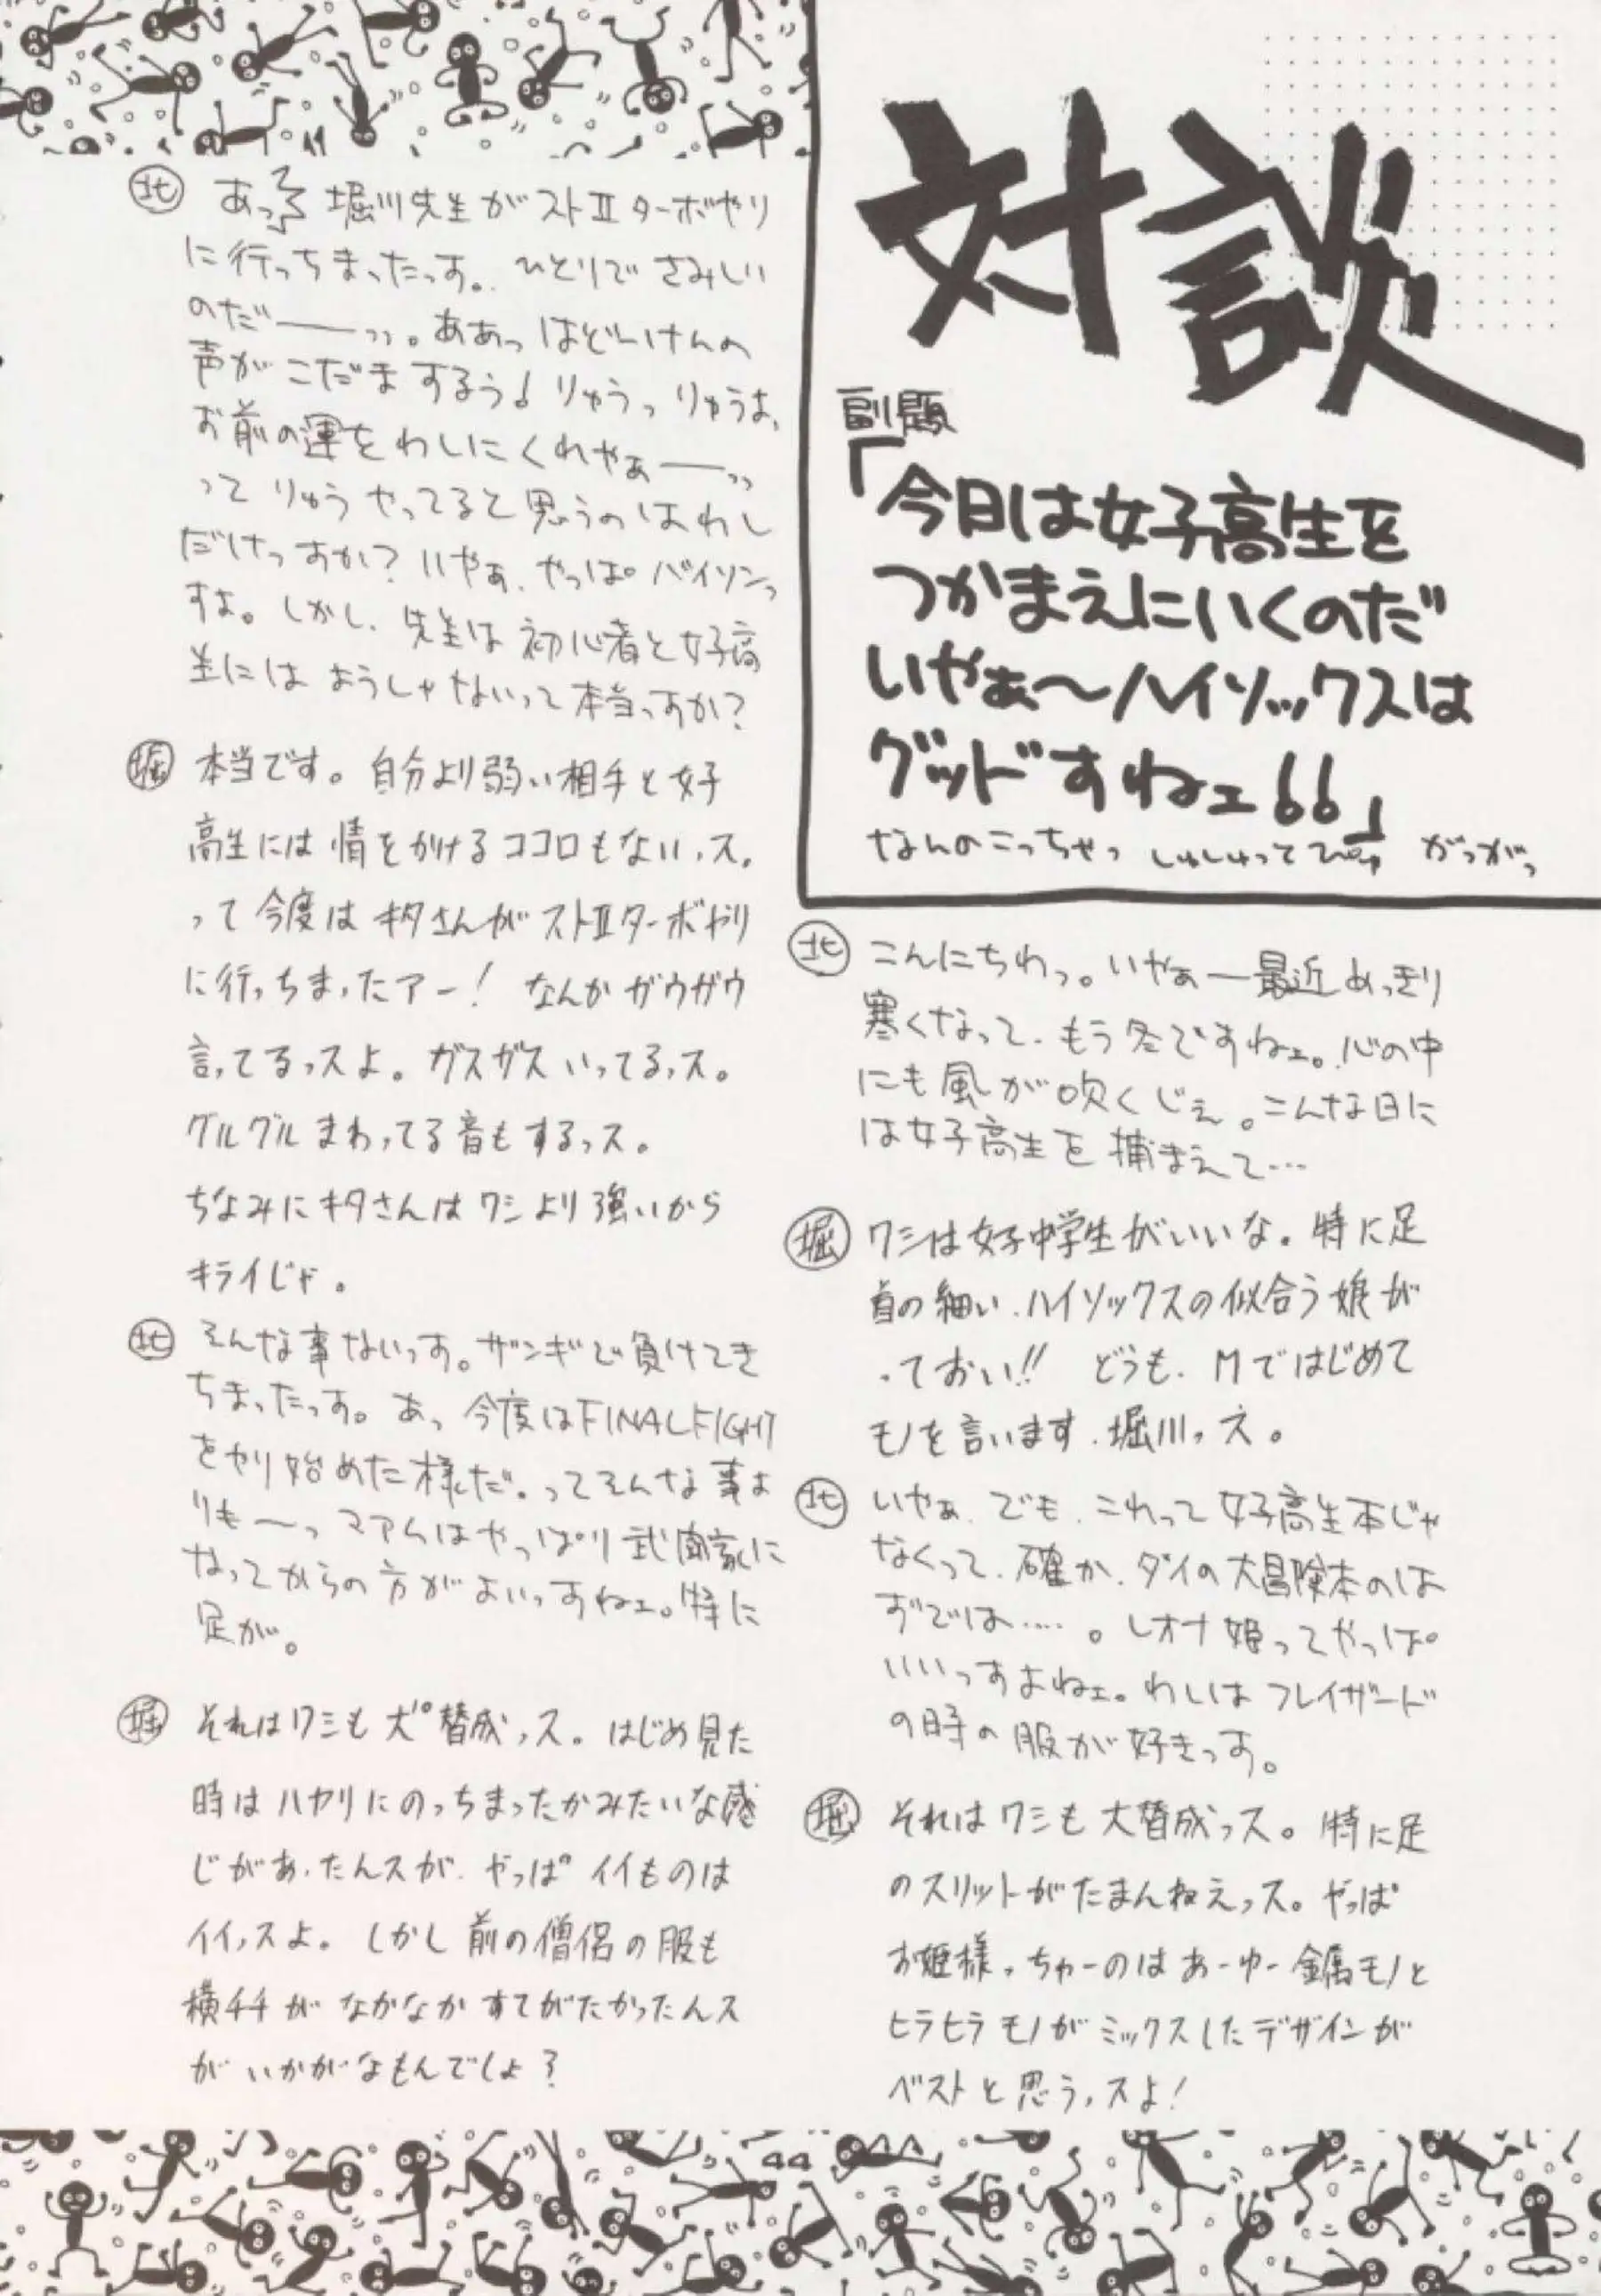 対談
副題
「今日は女子高生を
つかまえにいくのだ
いやぁ〜ハイソックスは
グッドすねェ!!」
なんのこっちゃっ しゅしゅって がつがつ
北 こんにちわっ。いやぁー最近めっきり
寒くなって、もう冬ですねェ。心の中
にも風が吹くじぇ。こんな日に
は女子高生を捕まえて…
堀 ワシは女子中学生がいいな。特に足
首の細い、ハイソックスの似合う娘が
っておい!! どうも、Mではじめて
モノを言います、堀川っス。
北 いやぁ、でも、これって女子高生本じゃ
なくって、確か、ダイの大冒険本のは
ずでは……。レオナ姫ってやっぱ
いいっすよねェ。わしはフレイザード
の時の服が好きっす。
堀 それはワシも大賛成っス。特に足
のスリットがたまんねえっス。やっぱ
お姫様っちゅーのはあーゆー金属モノと
ヒラヒラモノがミックスしたデザインが
ベストと思うっスよ!
北 あっ 堀川先生がストⅡターボやり
に行っちまったっす。ひとりでさみしい
のだ――ッッ。ああっはどーけんの
声がこだまするぅ! りゅうっりゅうよ、
お前の運をわしにくれやぁ――ッッ
ってりゅうやってると思うのはわし
だけっすか? いやぁ、やっぱバイソンっ
すよ。しかし、先生は初心者と女子高
生にはようしゃないって本当っすか?
堀 本当です。自分より弱い相手と女子
高生には情をかけるココロもないっス。
って今度はキタさんがストⅡターボやり
に行っちまったアー! なんかガウガウ
言ってるっスよ。ガスガスいってるっス。
グルグルまわってる音もするっス。
ちなみにキタさんはワシより強いから
キライじゃ。
北 そんな事ないっす。ザンギで負けてき
ちまったっす。あっ 今度はFINALFIGHT
をやり始めた様だ。ってそんな事よ
りも〜っ マアムはやっぱり武闘家に
なってからの方がよいっすねェ。特に
足が。
堀 それはワシも大賛成っス。はじめ見た
時はハヤリにのっちまったかみたいな感
じがあったんスが、やっぱイイものは
イイっスよ。しかし前の僧侶の服も
横チチがなかなかすてがたかったんス
がいかがなもんでしょ?
44